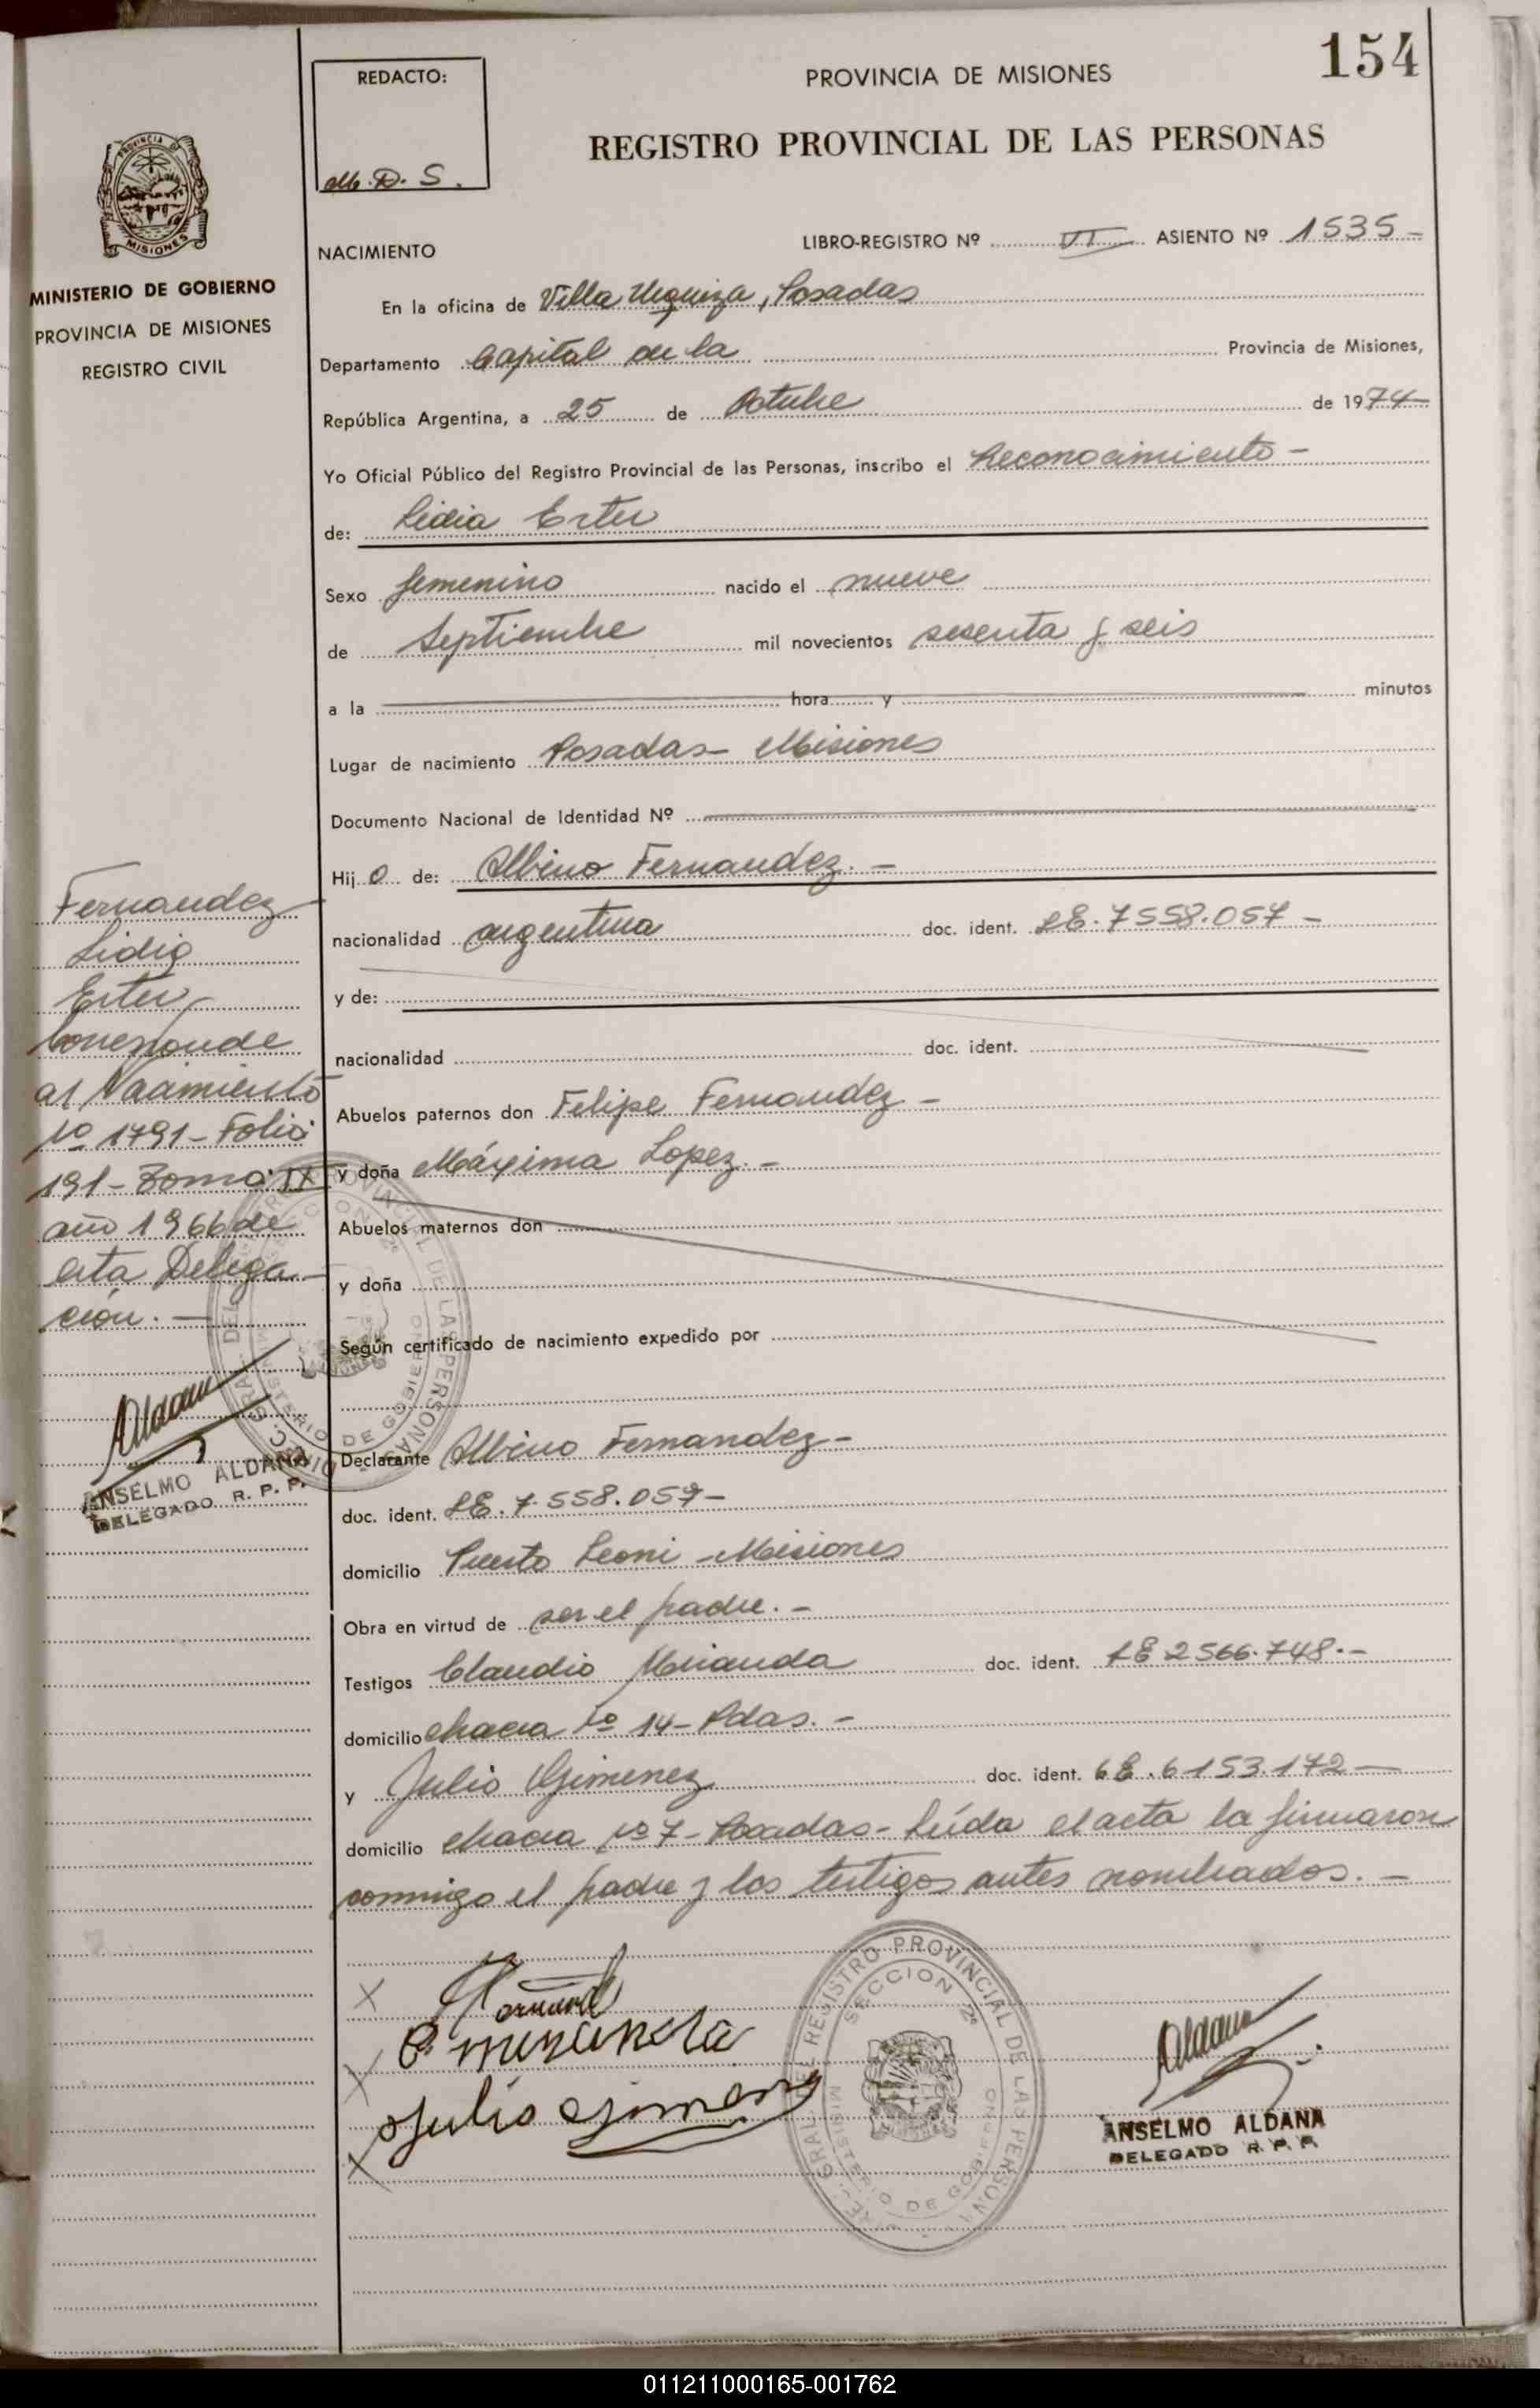 154
REDACTO:
M. D. S.
PROVINCIA DE MISIONES
REGISTRO PROVINCIAL DE LAS PERSONAS
PROVINCIA DE
MISIONES
MINISTERIO DE GOBIERNO
PROVINCIA DE MISIONES
REGISTRO CIVIL
NACIMIENTO
LIBRO-REGISTRO Nº VI ASIENTO Nº 1535-
En la oficina de Villa Urquiza, Posadas
Departamento Capital de la Provincia de Misiones,
República Argentina, a 25 de Octubre de 1974-
Yo Oficial Público del Registro Provincial de las Personas, inscribo el Reconocimiento-
de: Lidia Ester
Sexo femenino nacido el nueve
de Septiembre mil novecientos sesenta y seis
a la hora y minutos
Lugar de nacimiento Posadas- Misiones
Documento Nacional de Identidad Nº
Hij o de: Albino Fernandez.-
nacionalidad argentina doc. ident. LE.7558.057-
y de:
nacionalidad doc. ident.
Abuelos paternos don Felipe Fernandez-
y doña Máxima Lopez.-
Abuelos maternos don
y doña
Según certificado de nacimiento expedido por
Declarante Albino Fernandez-
doc. ident. LE.7.558.057-
domicilio Puerto Leoni-Misiones
Obra en virtud de ser el padre.-
Testigos Claudio Miranda doc. ident. LE 2566.748.-
domicilio chacra No 14- Pdas.-
y Julio Gimenez doc. ident. LE.6153.172-
domicilio chacra No 7- Posadas- Leída el acta la firmaron
conmigo el padre y los testigos antes nombrados.-
Fernandez
Lidia
Ester
Corresponde
al Nacimiento
No 1791- Folio
191- Tomo IX
año 1966 de
esta Delega-
ción.-
Aldana
ANSELMO ALDANA
DELEGADO R. P. P.
DIREC. GRAL. DEL REGISTRO PROVINCIAL DE LAS PERSONAS
SECCION 2º
MINISTERIO DE GOBIERNO
X
X C. miranda
X Julio Gimenez
DIREC. GRAL. DEL REGISTRO PROVINCIAL DE LAS PERSONAS
SECCION 2º
MINISTERIO DE GOBIERNO
Aldana
ANSELMO ALDANA
DELEGADO R. P. P.
011211000165-001762